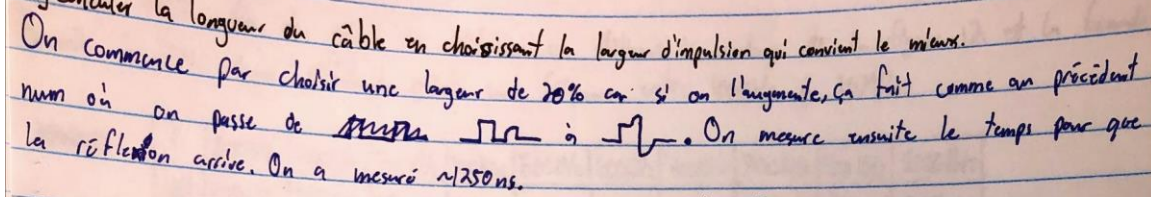 calculer la longueur du câble en choisissant la largeur d'impulsion qui convient le mieux.
On commence par choisir une largeur de 20% car si on l'augmente, ça fait comme au précédent
num où on passe de à . On mesure ensuite le temps pour que
la réflexion arrive. On a mesuré ~1250ns.